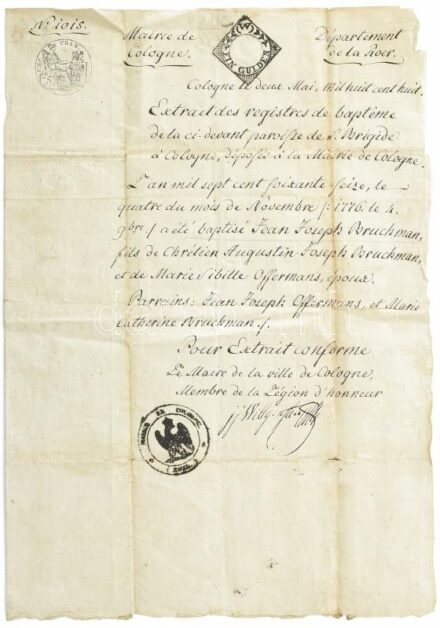 No. 1015.
Mairie de
Cologne.
Département
de la Roer.
GULDEN
Cologne le deux Mai, mil huit cent huit.
Extrait des registres de baptême
de la ci-devant paroisse de S. Brigide
à Cologne, déposés à la Mairie de Cologne.
L'an mil sept cent soixante-seize, le
quatre du mois de Novembre /: 1776. le 4.
9bre :/ a été baptisé Jean Joseph Bruchman,
fils de Chrétien Augustin Joseph Bruchman,
et de Marie Sibille Offermans, époux.
Parrains: Jean Joseph Offermans, et Marie
Catherine Bruchman ./.
Pour Extrait conforme
Le Maire de la ville de Cologne,
Membre de la Légion d'honneur
MAIRIE DE COLOGNE